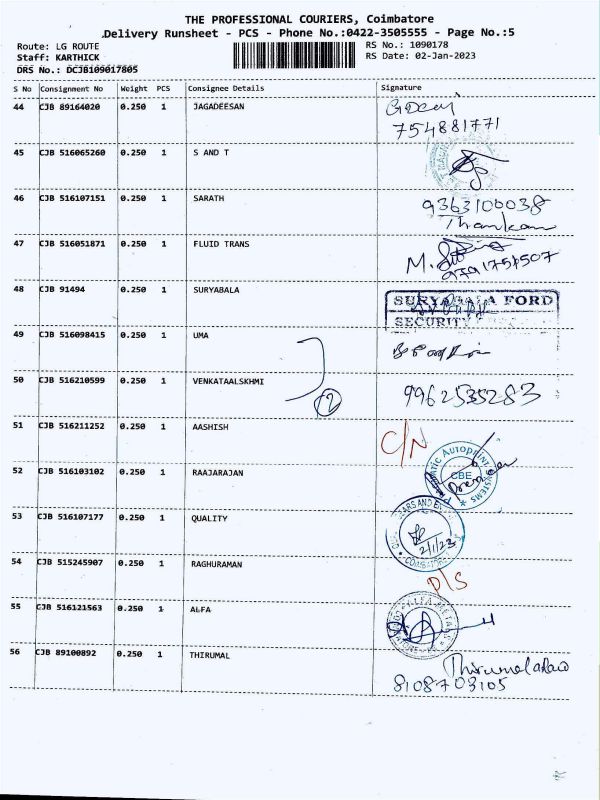 THE PROFESSIONAL COURIERS, Coimbatore
Delivery Runsheet - PCS - Phone No.:0422-3505555 - Page No.:5
Route: LG ROUTE
RS No.: 1090178
Staff: KARTHICK
RS Date: 02-Jan-2023
DRS No.: DCJB109017805
S No Consignment No Weight PCS Consignee Details Signature
44 CJB 89164020 0.250 1 JAGADEESAN
754881771
45 CJB 516065260 0.250 1 S AND T
46 CJB 516107151 0.250 1 SARATH 9363100038
47 CJB 516051871 0.250 1 FLUID TRANS
M.
9791757507
48 CJB 91494 0.250 1 SURYABALA
SURYABALA FORD
SECURITY
49 CJB 516098415 0.250 1 UMA
50 CJB 516210599 0.250 1 VENKATAALSKHMI 9962535283
12
51 CJB 516211252 0.250 1 AASHISH C/N
52 CJB 516103102 0.250 1 RAAJARAJAN
CBE
53 CJB 516107177 0.250 1 QUALITY
2/1/23
54 CJB 515245907 0.250 1 RAGHURAMAN D/S
55 CJB 516121563 0.250 1 ALFA
56 CJB 89100892 0.250 1 THIRUMAL
8108703105